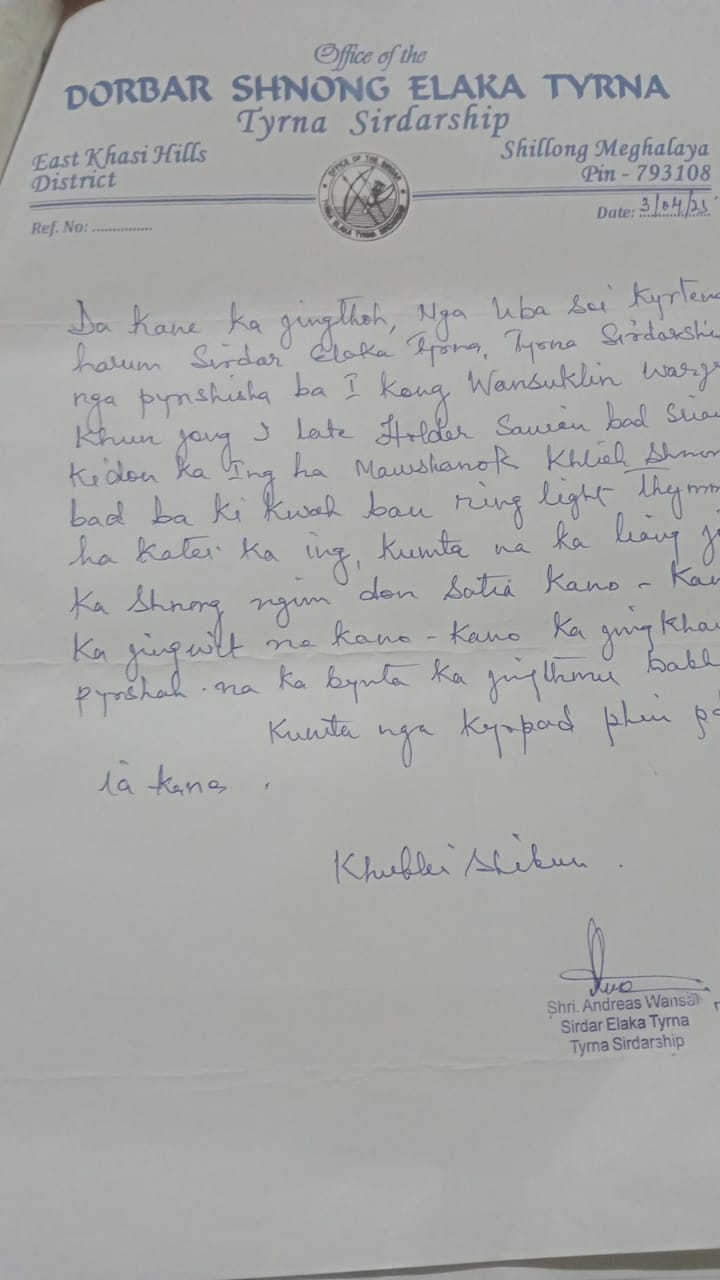 Office of the
DORBAR SHNONG ELAKA TYRNA
Tyrna Sirdarship
East Khasi Hills
District
Shillong Meghalaya
Pin - 793108
OFFICE OF THE SIRDAR
TYRNA ELAKA TYRNA SIRDARSHIP
Ref. No: ...............
Date: 3/04/25
Da kane ka jingthoh, Nga Uba Soi Kyrteng
harum Sirdar Elaka Tyrna, Tyrna Sirdarshi
nga pynshisha ba I Kong Wansuklin
Khun jong I late Holder Sawian bad
Ki don ka Ing ha Mawshanok Khlieh Shnon
bad ba ki kwah ban ring light thymm
ha katei ka ing, Kumta na ka liang
Ka Shnong ngim don Satia Kano - Kan
Ka jingwit na kano - kano ka jingkha
pyrshah na ka bynta ka jingthmu
Kumta nga kyrpad phin
ia kane .
Khublei Shibun .
Shri. Andreas Wansai
Sirdar Elaka Tyrna
Tyrna Sirdarship